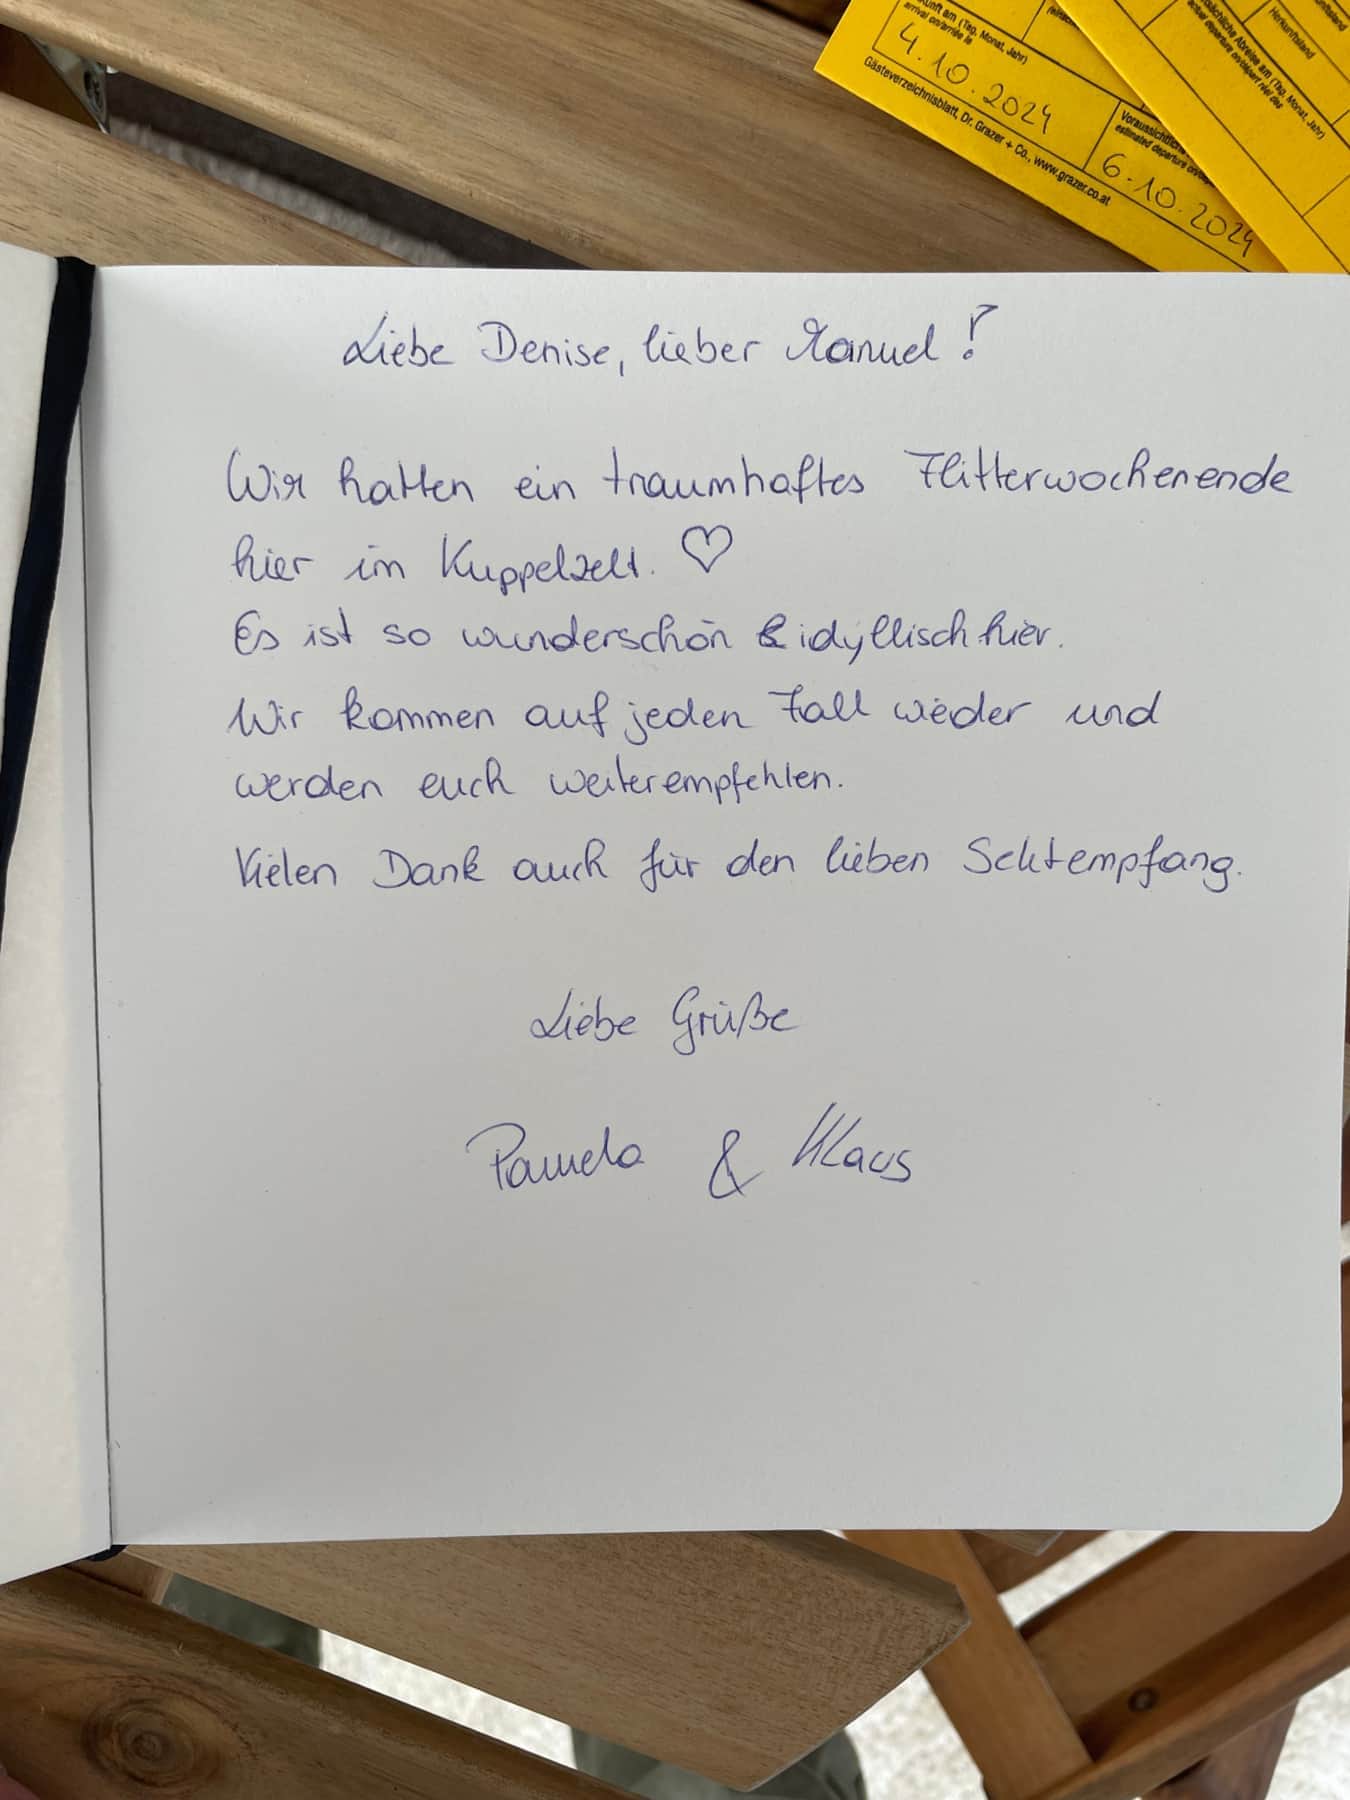 arrival on/arrivée le
4.10.2024
Gästeverzeichnisblatt, Dr. Grazer + Co., www.grazer.co.at
estimated departure on/
6.10.2024
(Tag, Monat, Jahr)
Herkunftsland
Liebe Denise, lieber Manuel!
Wir hatten ein traumhaftes Flitterwochenende
hier im Kuppelzelt. ♡
Es ist so wunderschön & idyllisch hier.
Wir kommen auf jeden Fall wieder und
werden euch weiterempfehlen.
Vielen Dank auch für den lieben Sektempfang.
Liebe Grüße
Pamela & Klaus